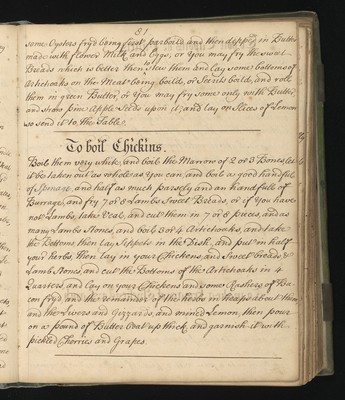 81
some Oysters fry'd being first parboild and then dipped in Butter
made with flower Milk and Eggs, or you may fry the sweet
Breads which is better then to stew them and lay some bottoms of
Artichoaks on the Meat being boild, or Scirits boild, and roll
them in green Butter, or you may fry some only with Butter,
and straw fine Apple seeds upon it, and lay on Slices of Lemon
so send it to the Table.
To boil Chickins.
Boil them very white, and boil the Marrow of 2 or 3 Bones, let
it be taken out as whole as You can, and boil a good handfull
of Spinage, and half as much parsely and an handfull of
Burrage, and fry 7 or 8 Lambs Sweet Breads, or if You have
not Lambs, take Veal, and cut them in 7 or 8 pieces, and as
many Lambs Stones, and boil 3 or 4 Artichoaks, and take
the Bottoms then lay Sippets in the Dish, and put in half
your herbs then lay in your Chickens and Sweet breads &
Lamb Stones, and cut the Bottoms of the Artichoaks in 4
Quarters, and lay on your Chickens and some Rashers of Ba
con fry'd and the remainder of the herbs in heaps about them
and the Livers and Gizzards, and minced Lemon, then pour
on a pound of Butter beat up thick, and garnish it with
pickled Cherries and Grapes.